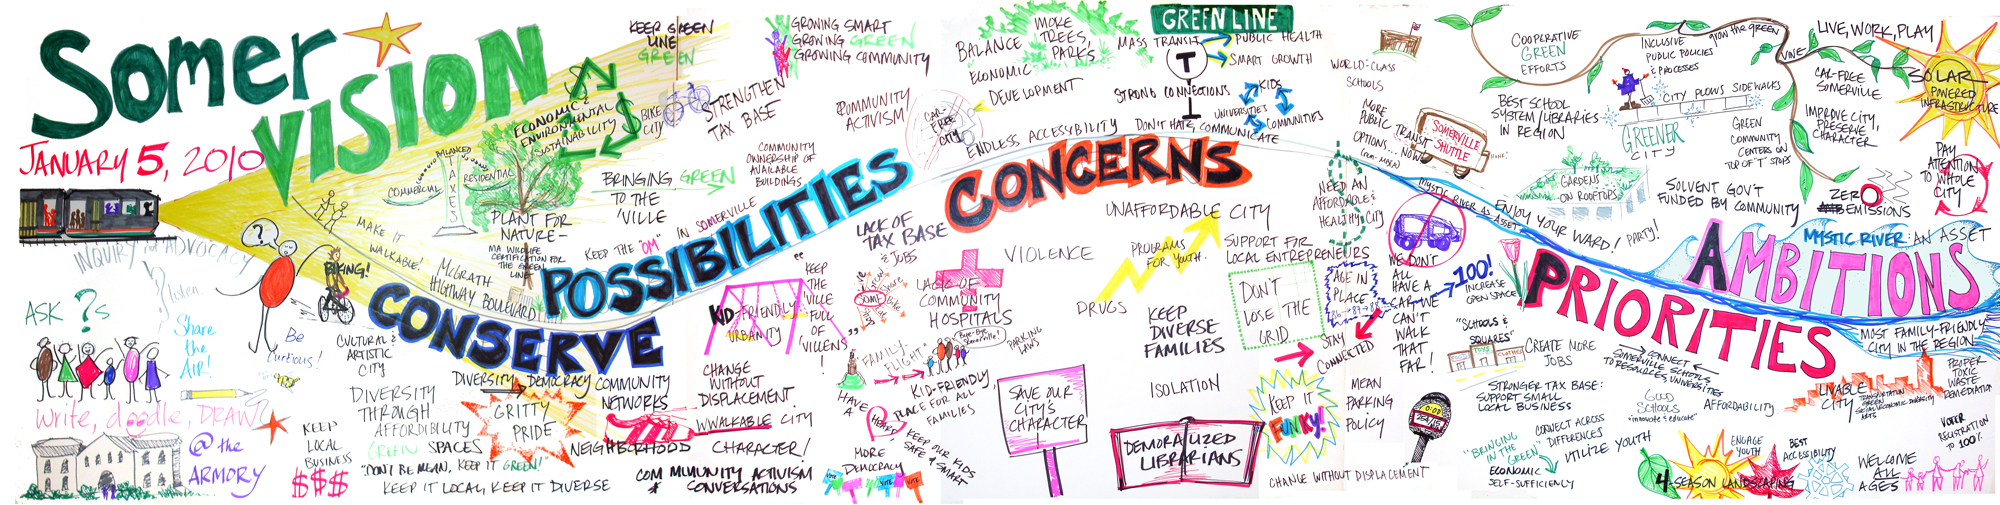 Somer
VISION
JANUARY 5, 2010
INQUIRY
ADVOCACY
ASK ?s
listen
Share
the
Air!
write, doodle, DRAW!
@ the
ARMORY
?
Be
Curious!
BIKING!
MAKE IT
WALKABLE!
COMMERCIAL
BALANCED
TAXES
RESIDENTIAL
PLANT FOR
NATURE-
MA WILDLIFE
CERTIFICATION FOR
THE GREEN
LINE
McGRATH
HIGHWAY BOULEVARD
ECONOMIC &
ENVIRONMENTAL
SUSTAINABILITY
$
KEEP GREEN
LINE
GREEN
BIKE
CITY
STRENGTHEN
TAX BASE
GROWING SMART
GROWING GREEN
GROWING COMMUNITY
BRINGING GREEN
TO THE
'VILLE
KEEP THE "OM" IN SOMERVILLE
COMMUNITY
OWNERSHIP OF
AVAILABLE
BUILDINGS
COMMUNITY
ACTIVISM
POSSIBILITIES
CONSERVE
CULTURAL &
ARTISTIC
CITY
KEEP
LOCAL
BUSINESS
$$$
DIVERSITY
THROUGH
AFFORDIBILITY
GREEN SPACES
"DON'T BE MEAN, KEEP IT GREEN!"
KEEP IT LOCAL, KEEP IT DIVERSE
DIVERSITY DEMOCRACY
GRITTY
PRIDE
COMMUNITY
NETWORKS
NEIGHBORHOOD
COMMMUNITY ACTIVISM
& CONVERSATIONS
KID-FRIENDLY
URBANITY
"KEEP
THE
'VILLE
FULL
OF
'VILLENS"
!
CHANGE
WITHOUT
DISPLACEMENT
WWALKABLE CITY
CHARACTER!
LACK OF
TAX BASE
& JOBS
FAMILY
FLIGHT
Bye-Bye
Somerville!
KID-FRIENDLY
PLACE FOR ALL
FAMILIES
HAVE
A
HEART!
KEEP OUR KIDS
SAFE & SMART
MORE
DEMOCRACY
VOTE
VOTE
VOTE
BALANCE
ECONOMIC
DEVELOPMENT
MORE
TREES,
PARKS
CAR-
FREE
CITY
ENDLESS ACCESSYBILITY
CONCERNS
GREEN LINE
MASS TRANSIT
PUBLIC HEALTH
SMART GROWTH
T
STRONG CONNECTIONS
KIDS
UNIVERSITIES
COMMUNITIES
DON'T HATE, COMMUNICATE
UNAFFORDABLE CITY
VIOLENCE
LACK OF
COMMUNITY
HOSPITALS
PARKING
LAWS
PROGRAMS
FOR YOUTH.
DRUGS
KEEP
DIVERSE
FAMILIES
ISOLATION
SAVE OUR
CITY'S
CHARACTER
DEMORALIZED
LIBRARIANS
SUPPORT FOR
LOCAL ENTREPRENEURS
DON'T
LOSE THE
GRID
STAY
CONNECTED
KEEP IT
FUNKY!
CHANGE WITHOUT DISPLACEMENT
MEAN
PARKING
POLICY
0:00
NEED AN
AFFORDABLE
&
HEALTHY CITY
AGE IN
PLACE
WE DON'T
ALL
HAVE A
CAR-WE
CAN'T
WALK
THAT
FAR!
WORLD-CLASS
SCHOOLS
MORE
PUBLIC TRANSIT
OPTIONS... NOW!
(non-MBTA)
SOMERVILLE
SHUTTLE
MYSTIC
RIVER AS ASSET
ENJOY YOUR WARD! PARTY!
100!
INCREASE
OPEN SPACE
PRIORITIES
AMBITIONS
COOPERATIVE
GREEN
EFFORTS
BEST SCHOOL
SYSTEM/LIBRARIES
IN REGION
INCLUSIVE
PUBLIC POLICIES
& PROCESSES
grow the green
VINE
CITY PLOWS SIDEWALKS
GREENER
CITY
GREEN
COMMUNITY
CENTERS ON
TOP OF 'T' STOPS
GARDENS
ON ROOFTOPS
SOLVENT GOV'T
FUNDED BY COMMUNITY
LIVE, WORK, PLAY
CAR-FREE
SOMERVILLE
IMPROVE CITY,
PRESERVE
CHARACTER
SOLAR
POWERED
INFRASTRUCTURE
PAY
ATTENTION
TO WHOLE
CITY
ZERO
EMISSIONS
MYSTIC RIVER: AN ASSET
MOST FAMILY-FRIENDLY
CITY IN THE REGION
"SCHOOLS &
SQUARES"
TOYS
CLOTHES
CREATE MORE
JOBS
CONNECT
SOMERVILLE SCHOOLS
TO RESOURCES, UNIVERSITIES
STRONGER TAX BASE:
SUPPORT SMALL
LOCAL BUSINESS
GOOD
SCHOOLS
"innovate & educate"
AFFORDABILITY
LIVABLE
CITY
TRANSPORTATION
GREEN
SOCIAL/ECONOMIC DIVERSITY
ARTS
PROPER
TOXIC
WASTE
REMEDIATION
VOTER
REGISTRATION
TO 100%
"BRINGING
IN THE
GREEN"
ECONOMIC
SELF-SUFFICIENCY
CONNECT ACROSS
DIFFERENCES
UTILIZE YOUTH
ENGAGE
YOUTH
BEST
ACCESSIBILITY
4-SEASON LANDSCAPING
WELCOME
ALL
AGES